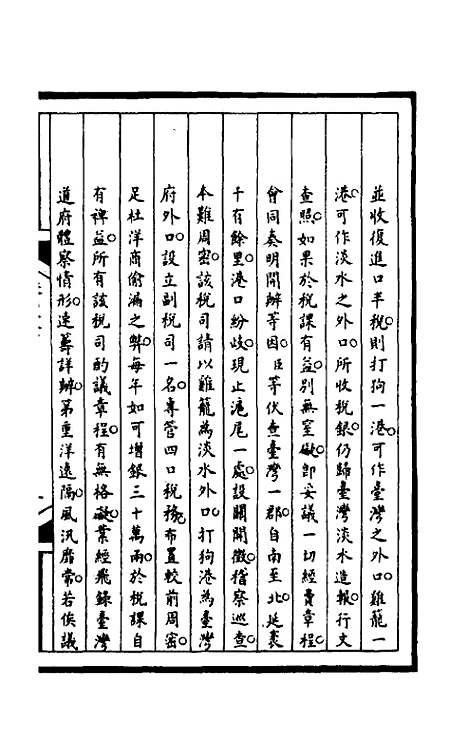 並收復進口半稅則打狗一港可作臺灣之外口雞籠一
港可作淡水之外口所收稅銀仍歸臺灣淡水造報行文
查照如果於稅課有益別無窒礙即妥議一切經費章程
會同奏明開辦等因臣等伏查臺灣一郡自南至北延袤
千有餘里港口紛歧現止滬尾一處設關開徵稽察巡查
本難周密該稅司請以雞籠為淡水外口打狗港為臺灣
府外口設立副稅司一名專管四口稅務布置較前周密
足杜洋商偷漏之弊每年如可增銀三十萬兩於稅課自
有裨益所有該稅司酌議章程有無格礙業經飛錄臺灣
道府體察情形速籌詳辦第重洋遠隔風汛靡常若俟議